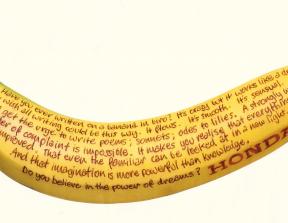 Have you ever written on a banana in biro? It's crazy but it works like a
with all writing could be this way. It flows. It's smooth. It's sensual.
get the urge to write poems; sonnets; odes to lilies. A strongly w
er of complaint is impossible. It makes you realise that everything
improved. That even the familiar can be looked at in a new light.
And that imagination is more powerful than knowledge.
Do you believe in the power of dreams? HONDA